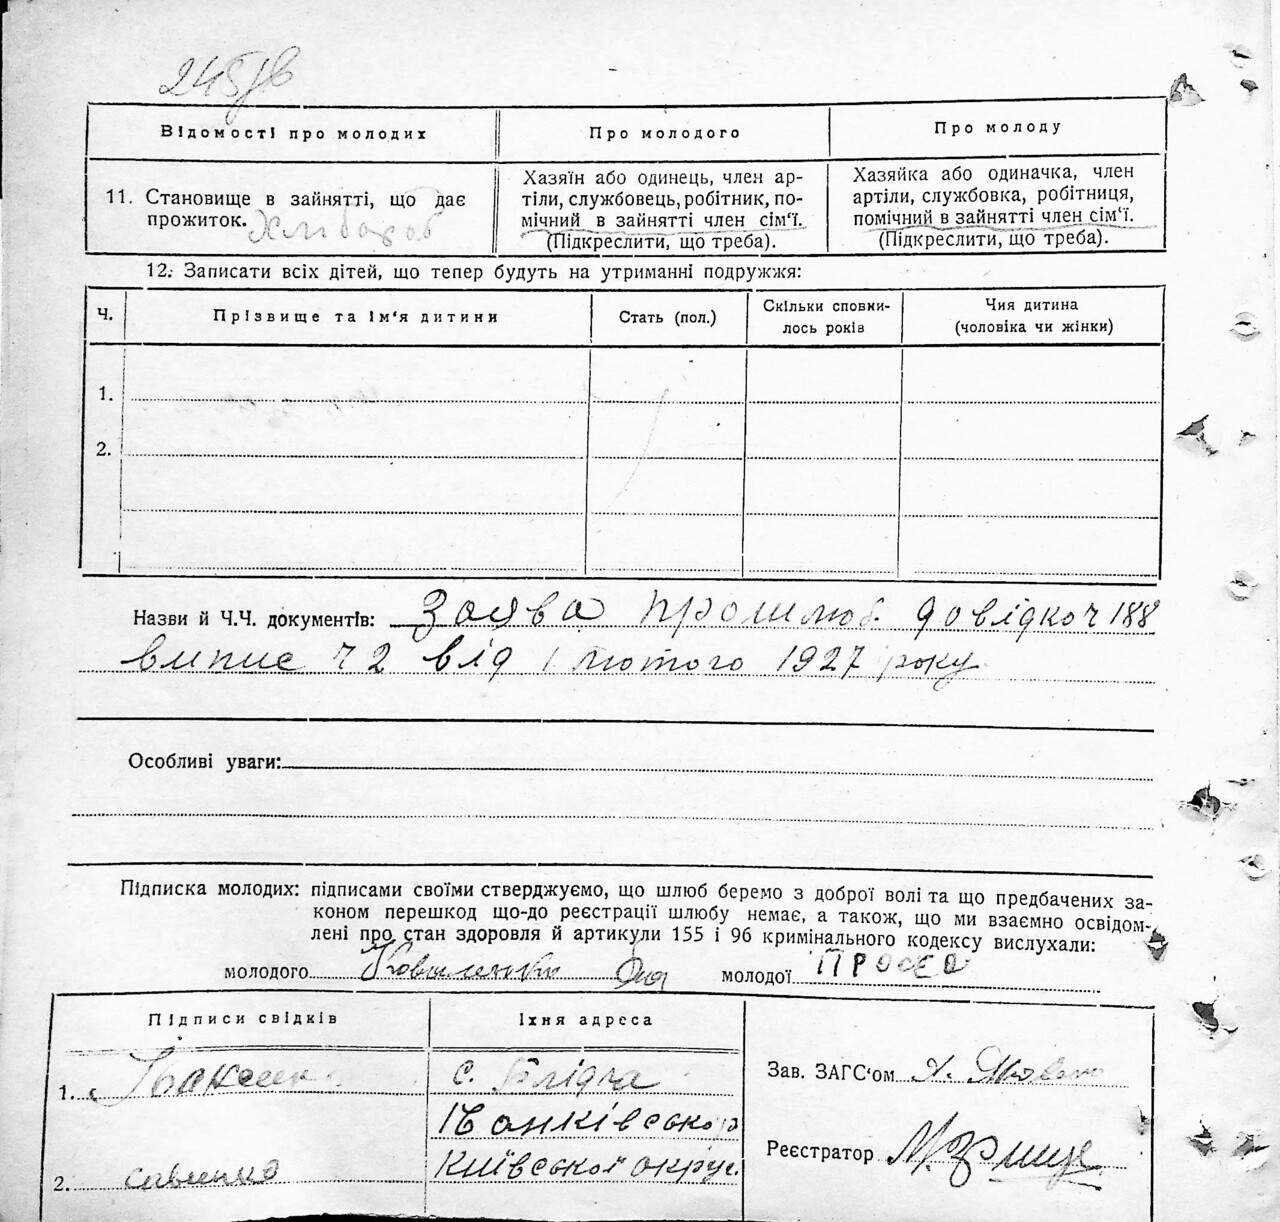 Відомості про молодих
Про молодого
Про молоду
11. Становище в зайнятті, що дає
прожиток. Хлібороб
Хазяїн або одинець, член ар-
тіли, службовець, робітник, по-
мічний в зайнятті член сім‘ї.
(Підкреслити, що треба).
Хазяйка або одиначка, член
артіли, службовка, робітниця,
помічний в зайнятті член сім‘ї.
(Підкреслити, що треба).
12. Записати всіх дітей, що тепер будуть на утриманні подружжя:
Ч.
Прізвище та ім‘я дитини
Стать (пол.)
Скільки сповни-
лось років
Чия дитина
(чоловіка чи жінки)
1.
2.
Назви й Ч.Ч. документів: Заява про шлюб. довідка ч 188
випис ч 2 від 1 лютого 1927 року
Особливі уваги:
Підписка молодих: підписами своїми стверджуємо, що шлюб беремо з доброї волі та що предбачених за-
коном перешкод що-до реєстрації шлюбу немає, а також, що ми взаємно освідом-
лені про стан здоровля й артикули 155 і 96 кримінального кодексу вислухали:
молодого Коваленко молодої
Підписи свідків
Їхня адреса
1. с.
2. Савенко
Київської округ.
Зав. ЗАГС‘ом
Реєстратор